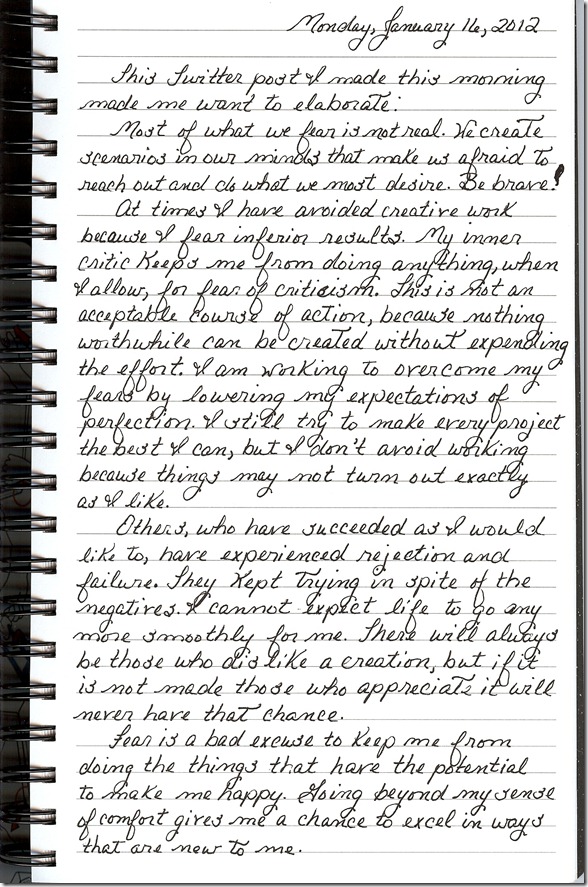 Monday, January 16, 2012
This Twitter post I made this morning
made me want to elaborate:
Most of what we fear is not real. We create
scenarios in our minds that make us afraid to
reach out and do what we most desire. Be brave!
At times I have avoided creative work
because I fear inferior results. My inner
critic keeps me from doing anything, when
I allow, for fear of criticism. This is not an
acceptable course of action, because nothing
worthwhile can be created without expending
the effort. I am working to overcome my
fears by lowering my expectations of
perfection. I still try to make every project
the best I can, but I don't avoid working
because things may not turn out exactly
as I like.
Others, who have succeeded as I would
like to, have experienced rejection and
failure. They kept trying in spite of the
negatives. I cannot expect life to go any
more smoothly for me. There will always
be those who dislike a creation, but if it
is not made those who appreciate it will
never have that chance.
Fear is a bad excuse to keep me from
doing the things that have the potential
to make me happy. Going beyond my sense
of comfort gives me a chance to excel in ways
that are new to me.